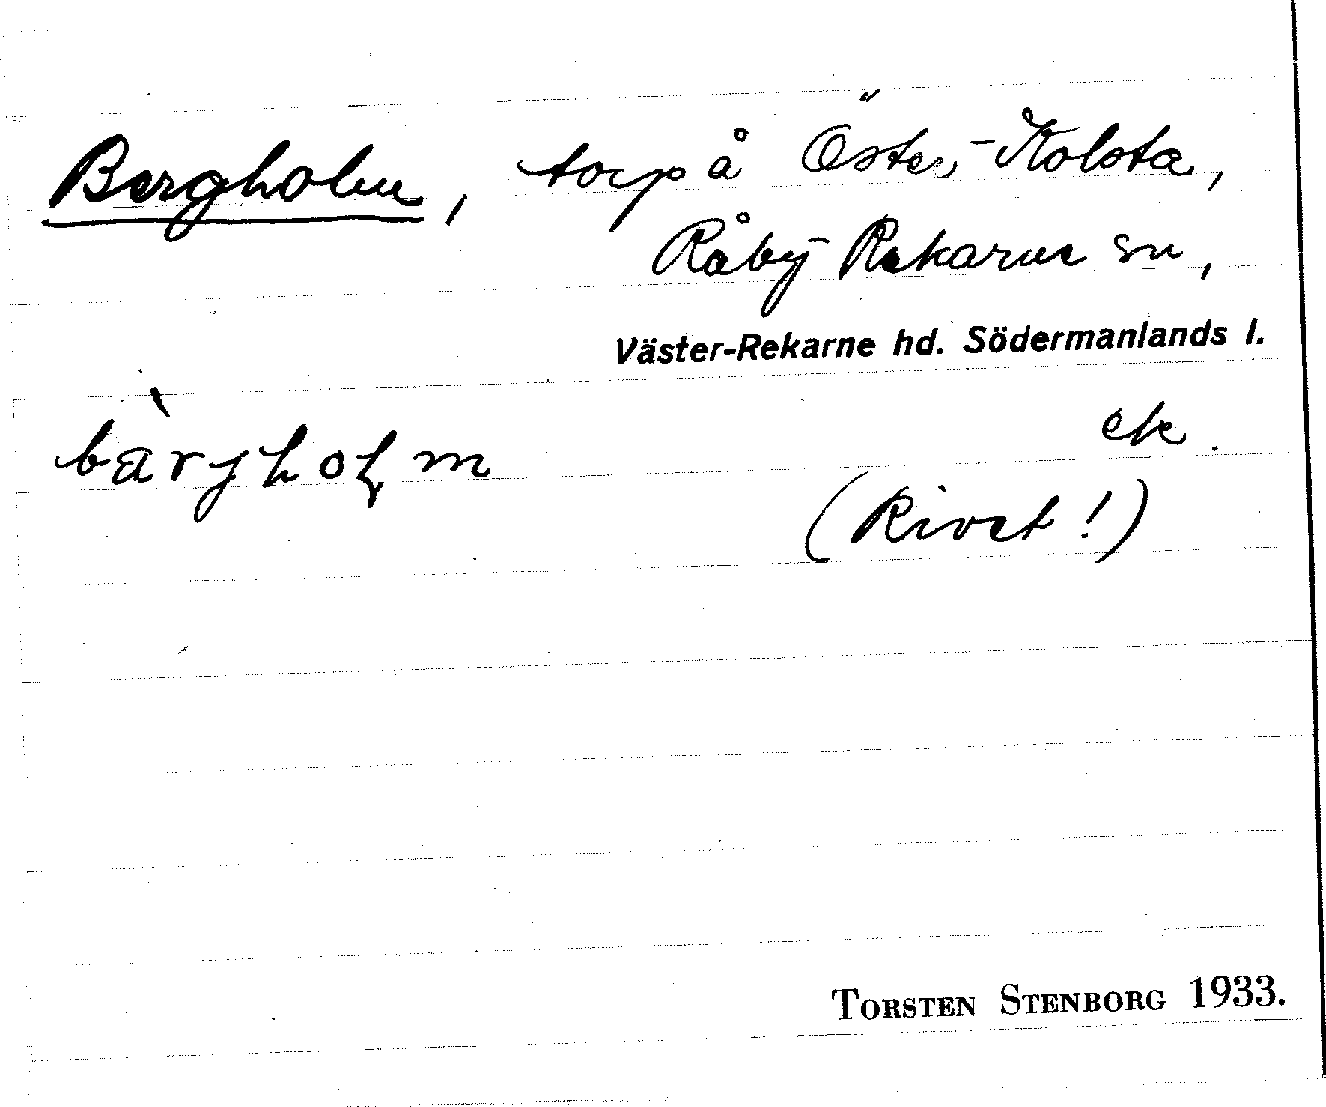 Bergholm, torp å Öster-Kolsta,
Råby-Rekarne sn,
Väster-Rekarne hd. Södermanlands l.
bàrjholm
ek.
(Rivet!)
TORSTEN STENBORG 1933.